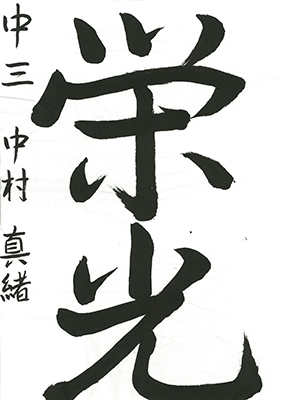 栄光
中三 中村 真緒